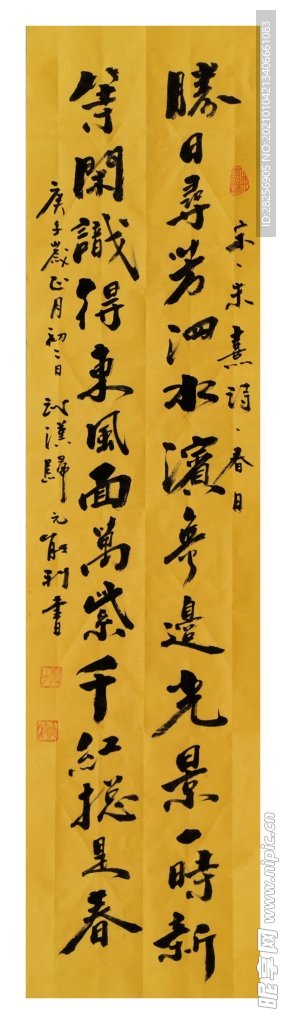 宋、朱熹詩、春日
勝日尋芳泗水濱無邊光景一時新
等閑識得東風面萬紫千紅總是春
庚子歲正月初二日 武漢歸元 能利書
ID:28256905 NO:20210104213406661083
昵享网 www.nipic.cn